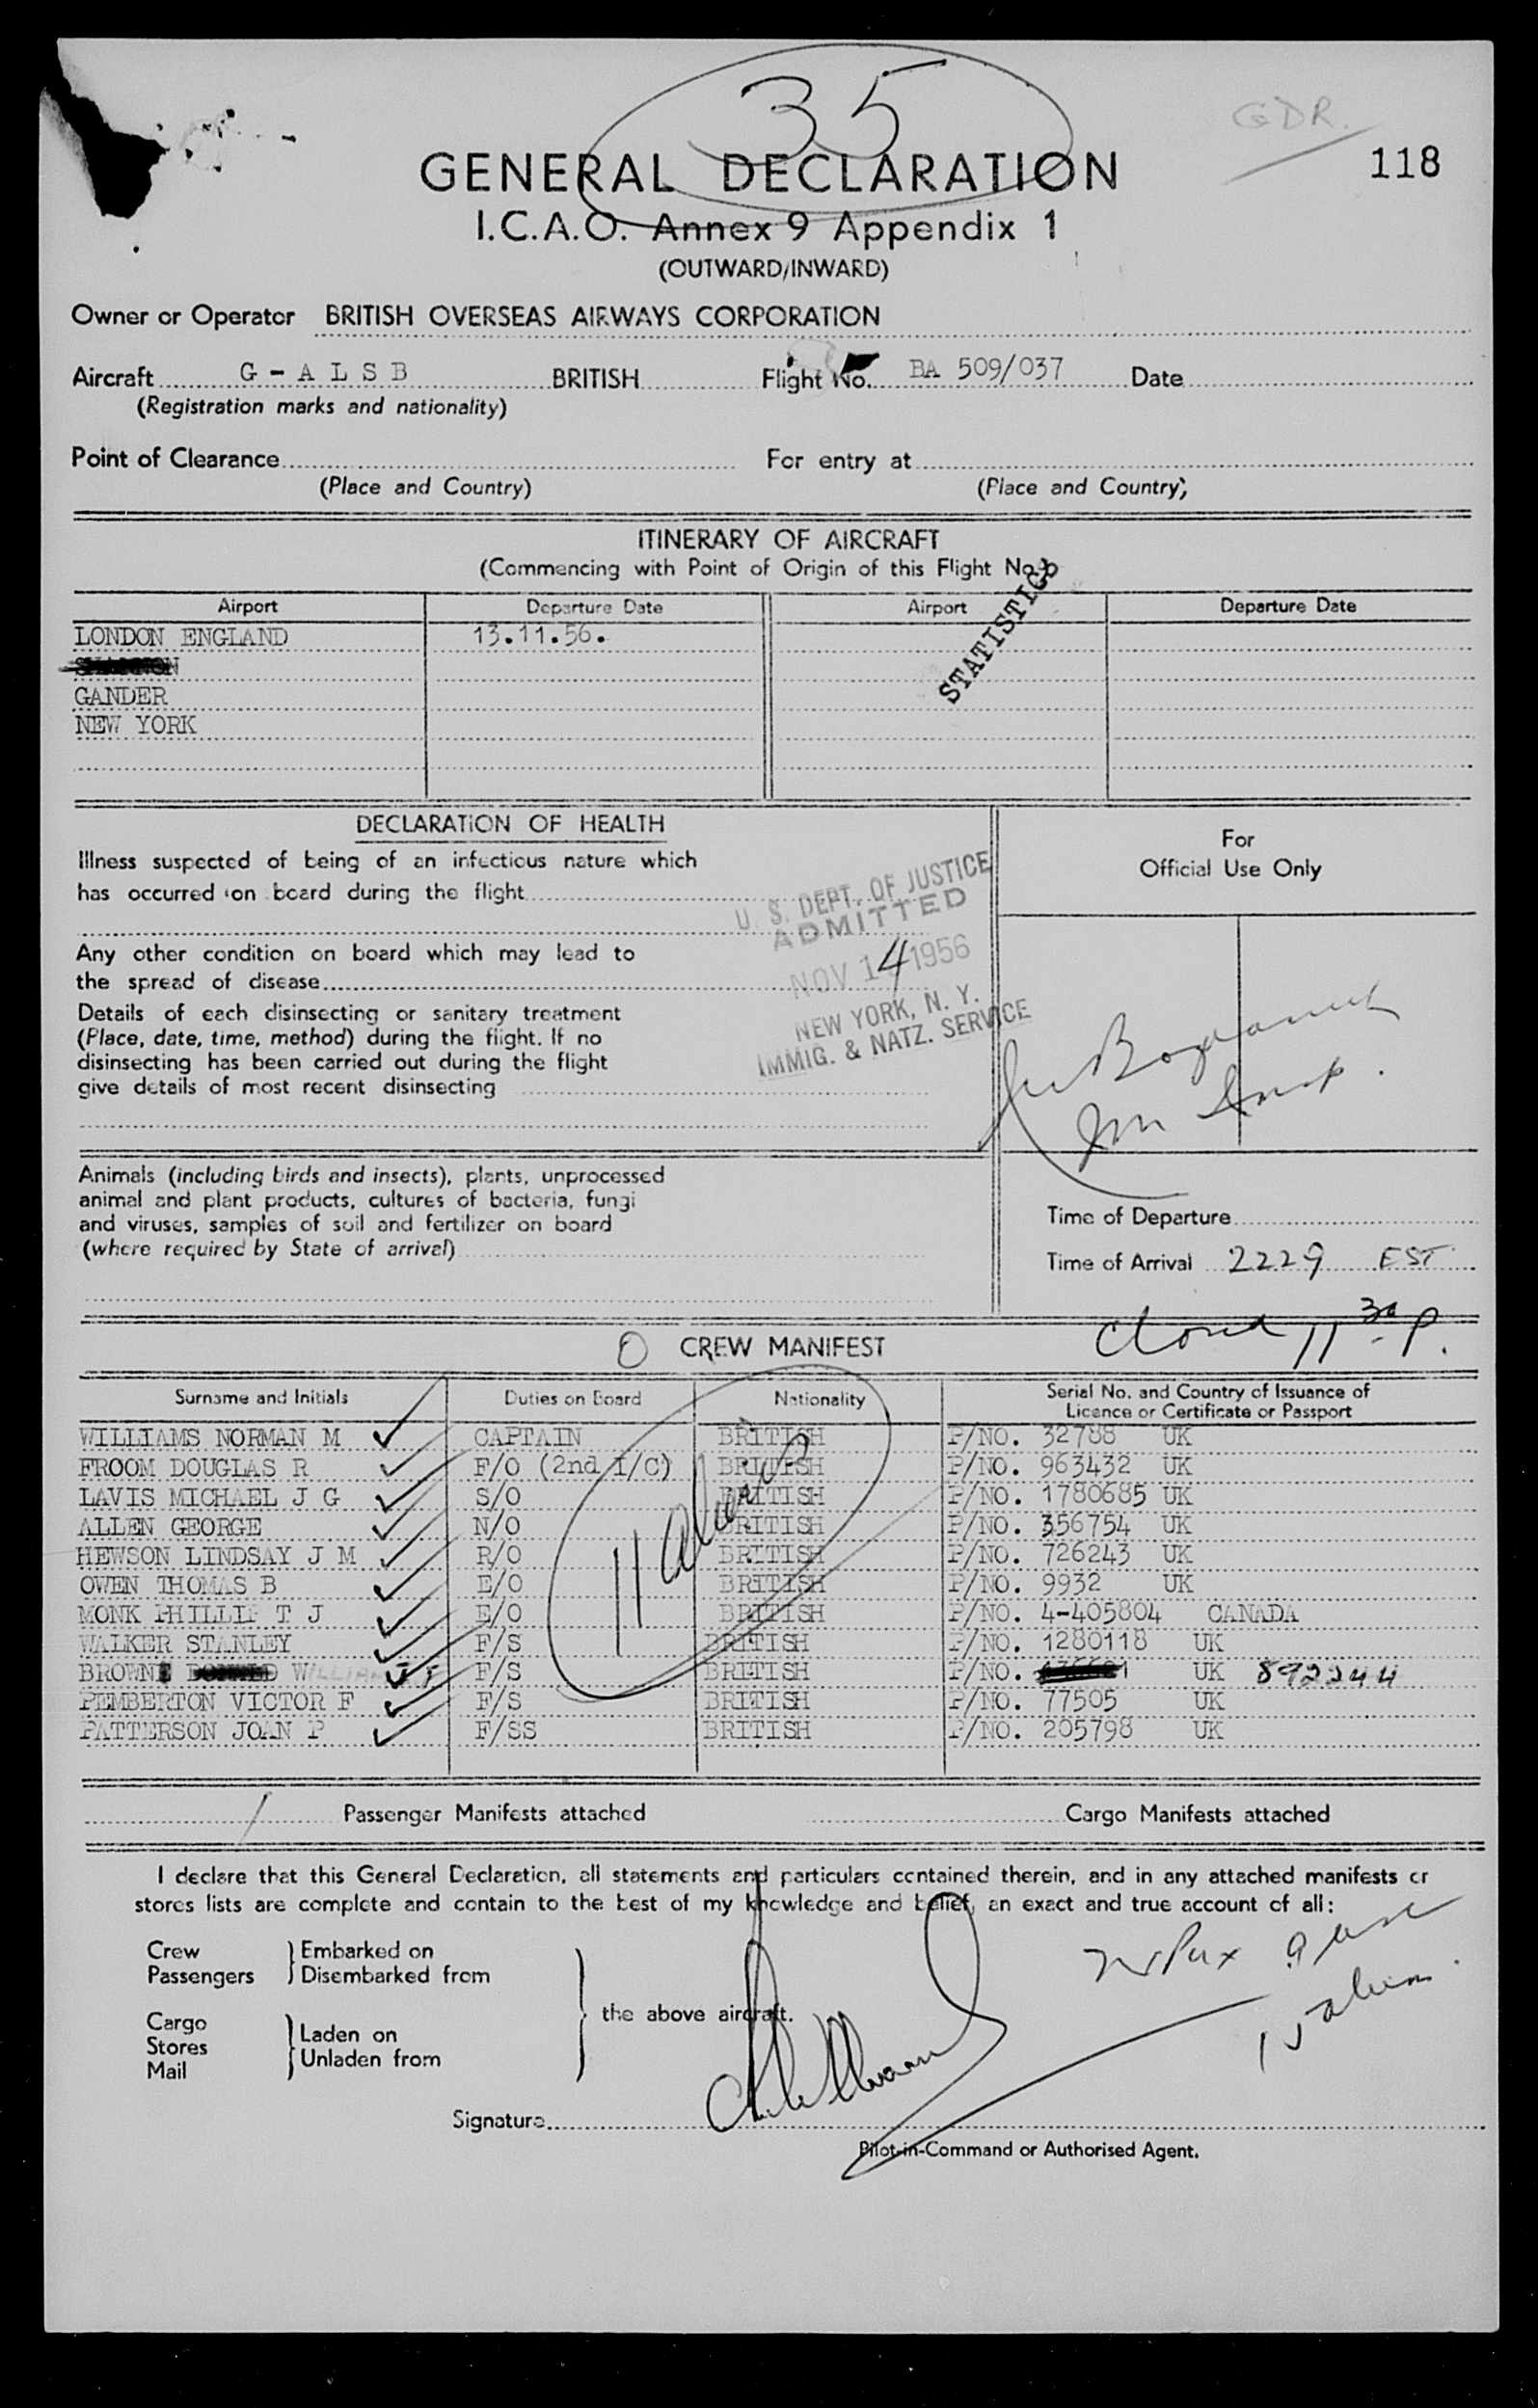 35
GDR.
118
GENERAL DECLARATION
I.C.A.O. Annex 9 Appendix 1
(OUTWARD/INWARD)
Owner or Operator BRITISH OVERSEAS AIRWAYS CORPORATION
Aircraft G - A L S B BRITISH Flight No. BA 509/037 Date
(Registration marks and nationality)
Point of Clearance For entry at
(Place and Country) (Place and Country)
ITINERARY OF AIRCRAFT
(Commencing with Point of Origin of this Flight No.)
STATISTICS
Airport Departure Date Airport Departure Date
LONDON ENGLAND 13.11.56.
SHANNON
GANDER
NEW YORK
DECLARATION OF HEALTH
Illness suspected of being of an infectious nature which
has occurred on board during the flight
Any other condition on board which may lead to
the spread of disease
Details of each disinsecting or sanitary treatment
(Place, date, time, method) during the flight. If no
disinsecting has been carried out during the flight
give details of most recent disinsecting
U. S. DEPT. OF JUSTICE
ADMITTED
NOV 14 1956
NEW YORK, N. Y.
IMMIG. & NATZ. SERVICE
For
Official Use Only
Animals (including birds and insects), plants, unprocessed
animal and plant products, cultures of bacteria, fungi
and viruses, samples of soil and fertilizer on board
(where required by State of arrival)
Time of Departure
Time of Arrival 2229 EST
11 30 P.
0 CREW MANIFEST
Surname and Initials Duties on Board Nationality Serial No. and Country of Issuance of
Licence or Certificate or Passport
WILLIAMS NORMAN M CAPTAIN BRITISH P/NO. 32788 UK
FROOM DOUGLAS R F/O (2nd I/C) BRITISH P/NO. 963432 UK
LAVIS MICHAEL J G S/O BRITISH P/NO. 1780685 UK
ALLEN GEORGE N/O BRITISH P/NO. 356754 UK
HEWSON LINDSAY J M R/O BRITISH P/NO. 726243 UK
OWEN THOMAS B E/O BRITISH P/NO. 9932 UK
MONK PHILLIP T J E/O BRITISH P/NO. 4-405804 CANADA
WALKER STANLEY F/S BRITISH P/NO. 1280118 UK
BROWNE WILLIAM J F F/S BRITISH P/NO. UK 892244
PEMBERTON VICTOR F F/S BRITISH P/NO. 77505 UK
PATTERSON JOAN P F/SS BRITISH P/NO. 205798 UK
11 aliens
1 Passenger Manifests attached Cargo Manifests attached
I declare that this General Declaration, all statements and particulars contained therein, and in any attached manifests or
stores lists are complete and contain to the best of my knowledge and belief, an exact and true account of all:
Crew
Passengers
Embarked on
Disembarked from
Cargo
Stores
Mail
Laden on
Unladen from
the above aircraft.
Pax 9
15 aliens
Signature
Pilot-in-Command or Authorised Agent.